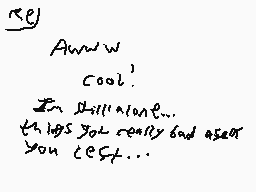 Rej
Awww
cool!
I'm still alone...
things got really bad after
you left...